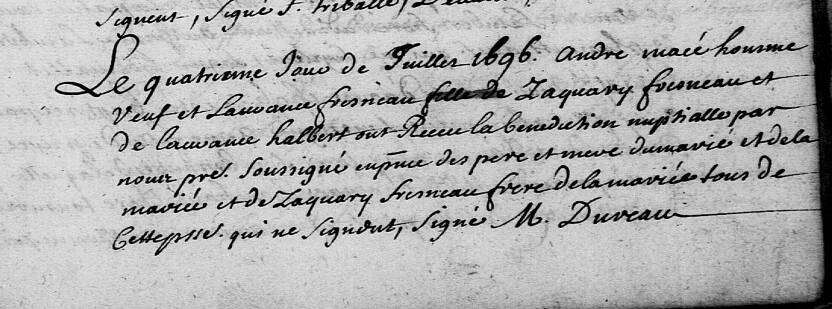 signent, Signé J. triballe,
Le quatrieme Jour de Juillet 1696. Andre macé homme
veuf et Laurance fresneau fille de Zaquary fresneau et
de laurance halbert ont Receu la benediction nuptialle par
nous pre. Soussigné en pnce des pere et mere du marié et de la
mariée et de Zaquary fresneau frere de la mariée tous de
Cette psse. qui ne signent, signé M. Duveau